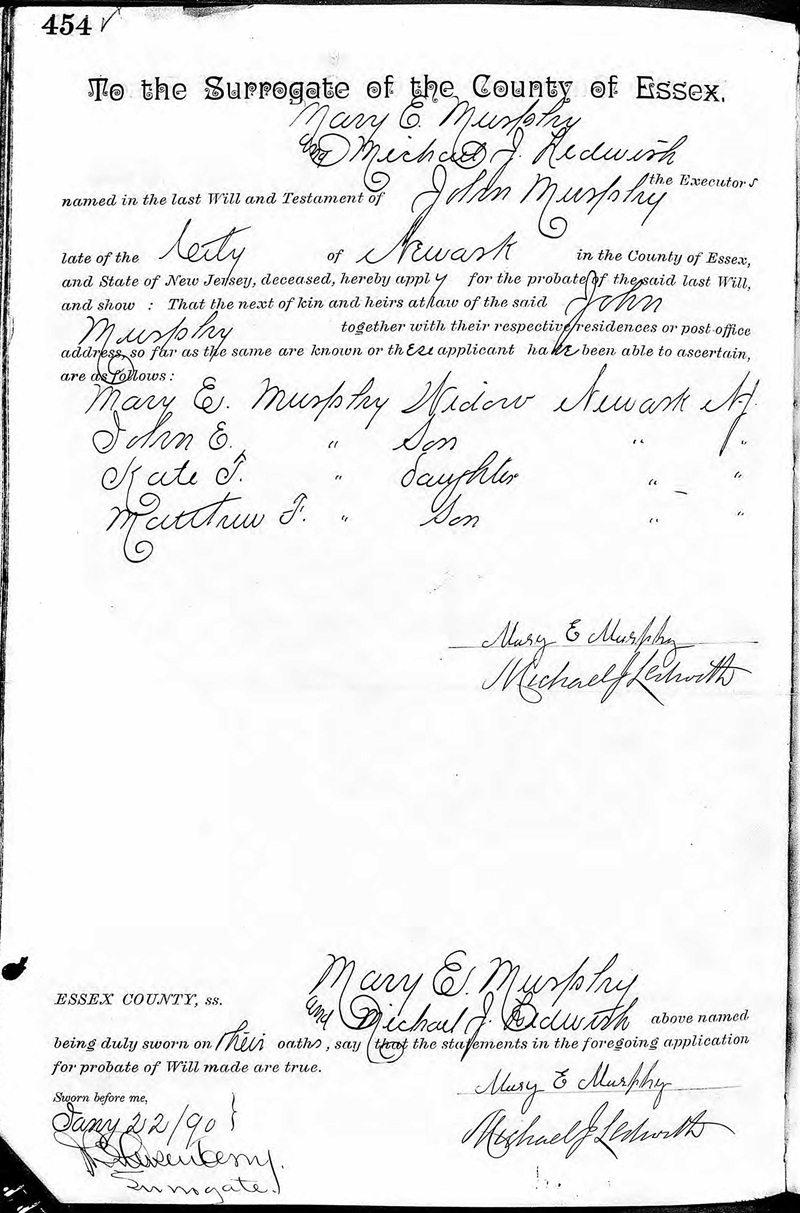 454 ✓
To the Surrogate of the County of Essex.
Mary E. Murphy
and Michael J. Ledwith
the Executors
named in the last Will and Testament of John Murphy
late of the City of Newark in the County of Essex,
and State of New Jersey, deceased, hereby apply for the probate of the said last Will,
and show : That the next of kin and heirs at law of the said John
Murphy together with their respective residences or post-office
address, so far as the same are known or these applicant have been able to ascertain,
are as follows :
Mary E. Murphy Widow Newark NJ.
John E. " Son " "
Kate T. " daughter " "
Matthew F. " Son " "
Mary E Murphy
Michael J Ledwith
Mary E. Murphy
ESSEX COUNTY, ss.
and Michael J. Ledwith above named
being duly sworn on their oaths, say that the statements in the foregoing application
for probate of Will made are true.
Mary E Murphy
Sworn before me,
Jany 22/90
Michael J Ledwith
Surrogate.